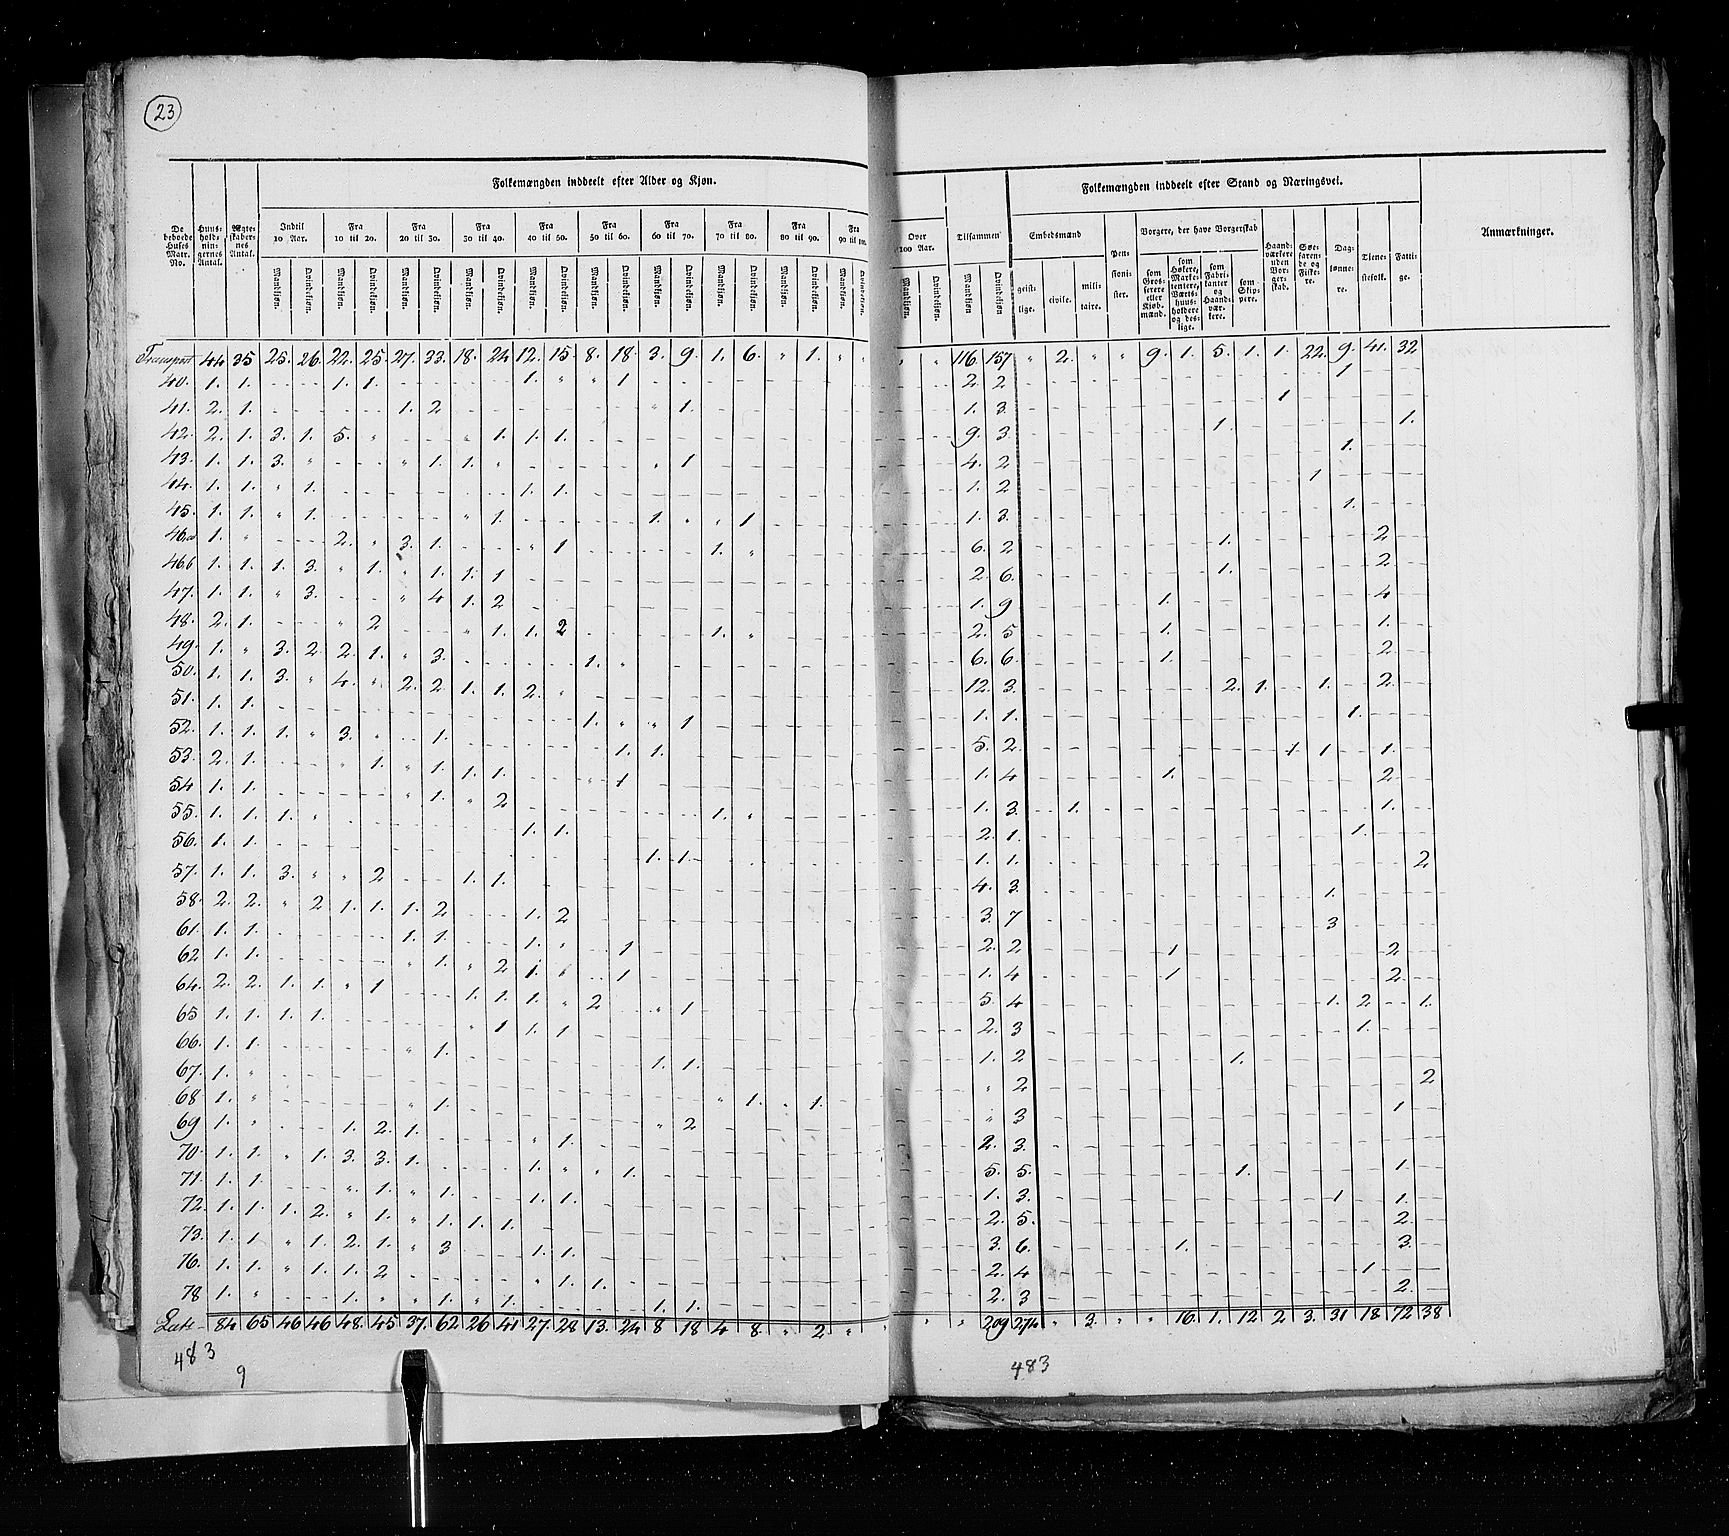 23
Folkemængden inddeelt efter Alder og Kjøn.
Folkemængden inddeelt efter Stand og Næringsvei.
De beboede Huses Matr. No.
Huusholdningernes Antal.
Ægteskabernes Antal.
Indtil 10 Aar.
Fra 10 til 20.
Fra 20 til 30.
Fra 30 til 40.
Fra 40 til 50.
Fra 50 til 60.
Fra 60 til 70.
Fra 70 til 80.
Fra 80 til 90.
Fra 90 til 100.
Over 100 Aar.
Tilsammen
Mandkjøn. Qvindekjøn.
Embedsmænd
geistlige. civile. militaire.
Pensionister.
Borgere, der have Borgerskab
som Grosserere eller Kjøbmænd.
som Høkere, Marketentere, Værtshuusholdere og deslige.
som Fabrikanter og Haandværkere.
som Skippere.
Haandværkere uden Borgerskab.
Søefarende og Fiskere.
Daglønnere.
Tjenestefolk.
Fattige.
Anmærkninger.
Transport 44 35 25. 26. 22. 25. 27. 33. 18. 24 12. 15. 8. 18. 3. 9. 1. 6. " 1. " " " 116. 157 " 2. " " 9. 1. 5. 1. 1. 22. 9. 41. 32
40. 1. 1. 1. 1. 1. " " 1 2. 2. 1
41. 2. 1. 1. 2 " 1. 1. 3. 1
42. 2. 1. 3. 1. 5. " " 1. 1. 1. 9. 3. 1. 1.
43. 1. 1. 3. " " 1. 1. " " 1 4. 2 1.
44. 1. 1. " 1. 1. 1. 1. 2 1
45. 1. 1. " 1. " 1. 1. " " 1 1. 3. 1.
46.a 1. " 2. " 3. 1. " 1 1. " 6. 2 1. 2
46.b 1. 1. 1. 3. " 1. " 1. 1. 1 2 6. 1. 2
47. 1. 1. " 3. " 4 1. 2 1. 9 1. 4
48. 2. 1. " 2 " 1. 1. 2 1. " 2. 5 1. 1.
49. 1. " 3. 2 2. 1. " 3. 1. " 6. 6. 1. 2
50. 1. 1. 3. " 4. " 2. 2 1. 1. 2. " 12. 3. 2. 1. 1. 2.
51. 1. 1. 1. " " 1 1. 1. 1.
52. 1. 1. 1. " 3. " 1. 1. 1. 5. 2. 1 1 1.
53. 2. 1. " 1. " 1. 1. 1. " 1 1. 4 1. 2
54 1. 1. " 1. " 2 1. 3. 1. 1.
55. 1. 1. 1. " 1. 1. 1. " 2. 1. 1.
56. 1. 1. 1. 1. 1. 1. 2
57. 1. 1. 3. " " 2 1. 1. 4. 3. 1.
58. 2. 2. " 2 1. 1. 1. 2 1. 2 3. 7 3
61. 1. 1. 1. 1. 1. " 1 2. 2 1 2
62 1. 1. " 1. " 2 1. " 1 1. 4 1 2.
64. 2. 2. 1. 1. " 1 1. 1. 1. " 2 " 1 5. 4 1. 2 1.
65 1. 1. 1. 1. " 1 1. 1 2. 3 1.
66. 1. 1. " 1. 1. 1. 1. 2 1.
67. 1. " " 2 2
68 1. " " 1. " 1. " 1. " 3 1
69 1. " 1. 2. 1. " 1. " 2 2. 3.
70. 1. 1. " 1. 3. 3. 1. 1. " " 1. 5. 5. 1. 1.
71. 1. 1. " 1. " 1. 1. 1. 1. 3. 1 1.
72. 1. 1. 1. 2. " 1. " 1. 1. 1. 2. 5. 2.
73. 1. 1. " 1. 2. 1. " 3 1. 1. 3. 6. 1. 3.
76. 1. 1. " 1. 1. 2 " 1. 1. 2. 4 1
78 1. " 1. " " 1. " 1. 1. 1. 2. 3 2.
Lat. 84 65 46 46 48. 45 37. 62. 26 41 27. 28 13. 24 8 18 4 8. " 2 " " " " 209 274 " 3. " " 16. 1. 12 2 3. 31 18. 72 38
483
9
483